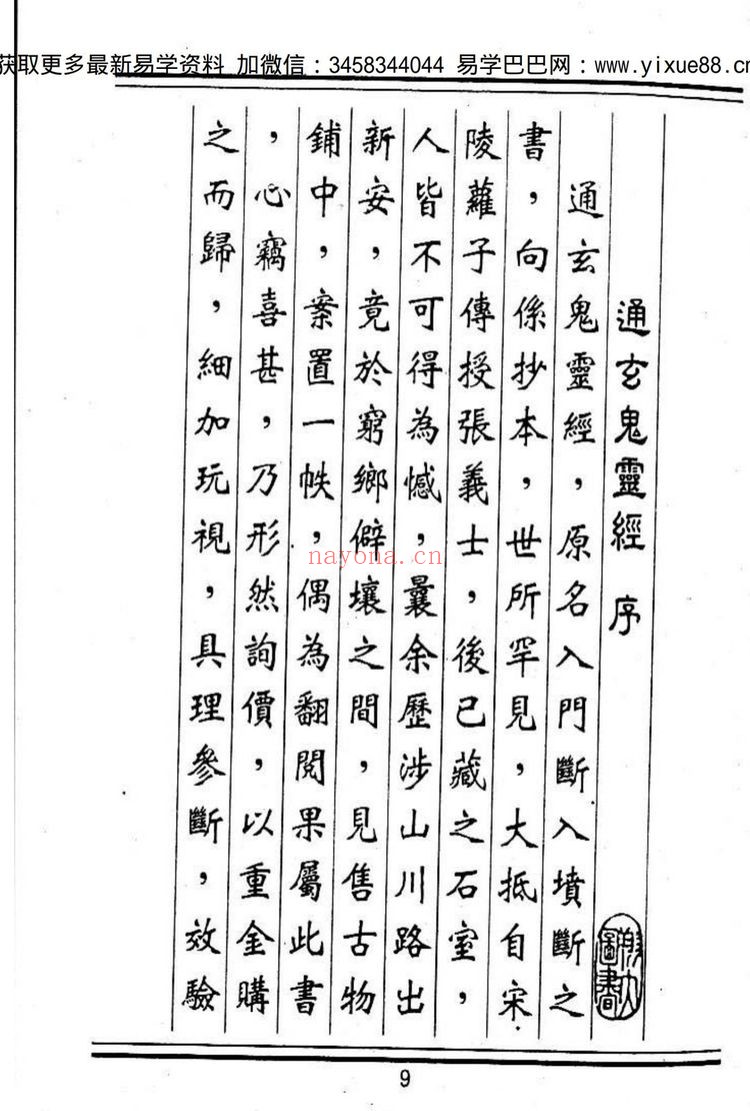 获取更多最新易学资料 加微信：3458344044 易学巴巴网：www.yixue88.cn
通玄鬼靈經 序
圖書
通玄鬼靈經，原名入門斷入墳斷之
書，向係抄本，世所罕見，大抵自宋
陵蘿子傳授張義士，後已藏之石室，
人皆不可得為憾，曩余歷涉山川路出
新安，竟於窮鄉僻壤之間，見售古物
鋪中，案置一帙，偶為翻閱果屬此書
，心竊喜甚，乃形然詢價，以重金購
之而歸，細加玩視，具理參斷，效驗
nayona.cn
9